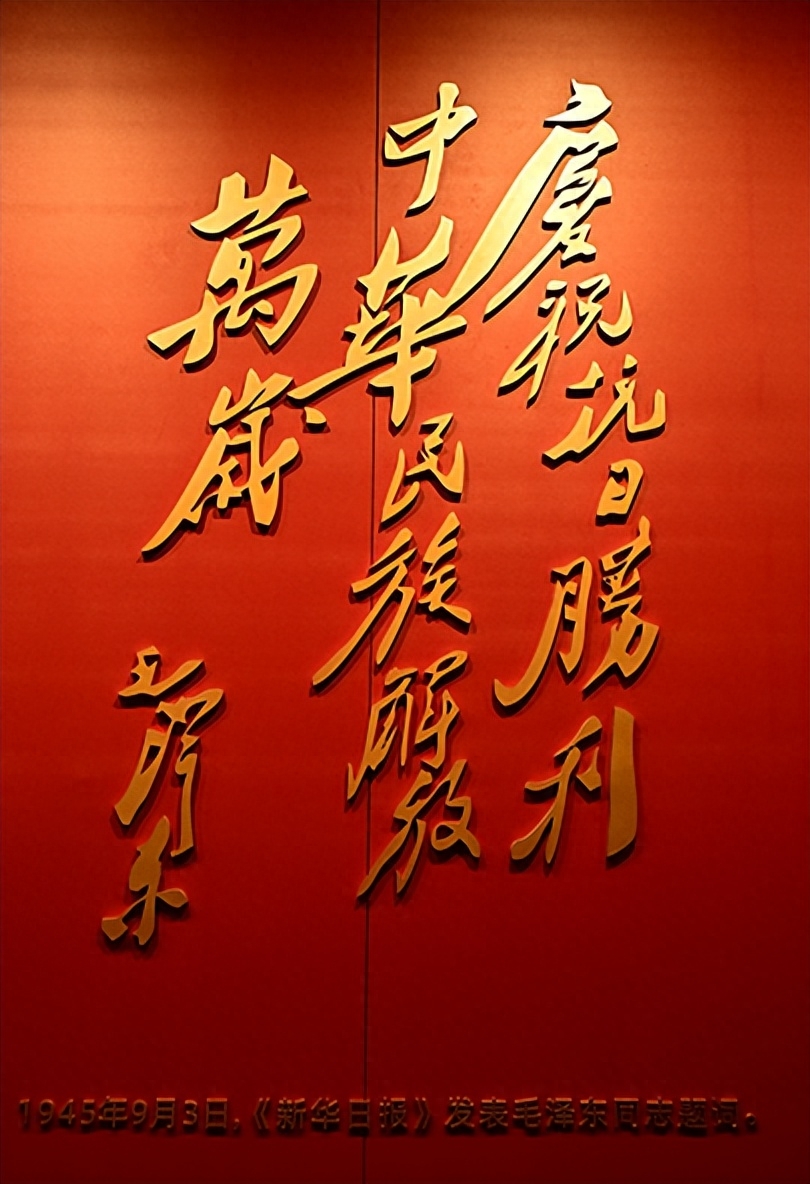 慶祝抗日勝利
中華民族解放
萬歲
毛澤东
1945年9月3日，《新华日报》发表毛泽东同志题词。